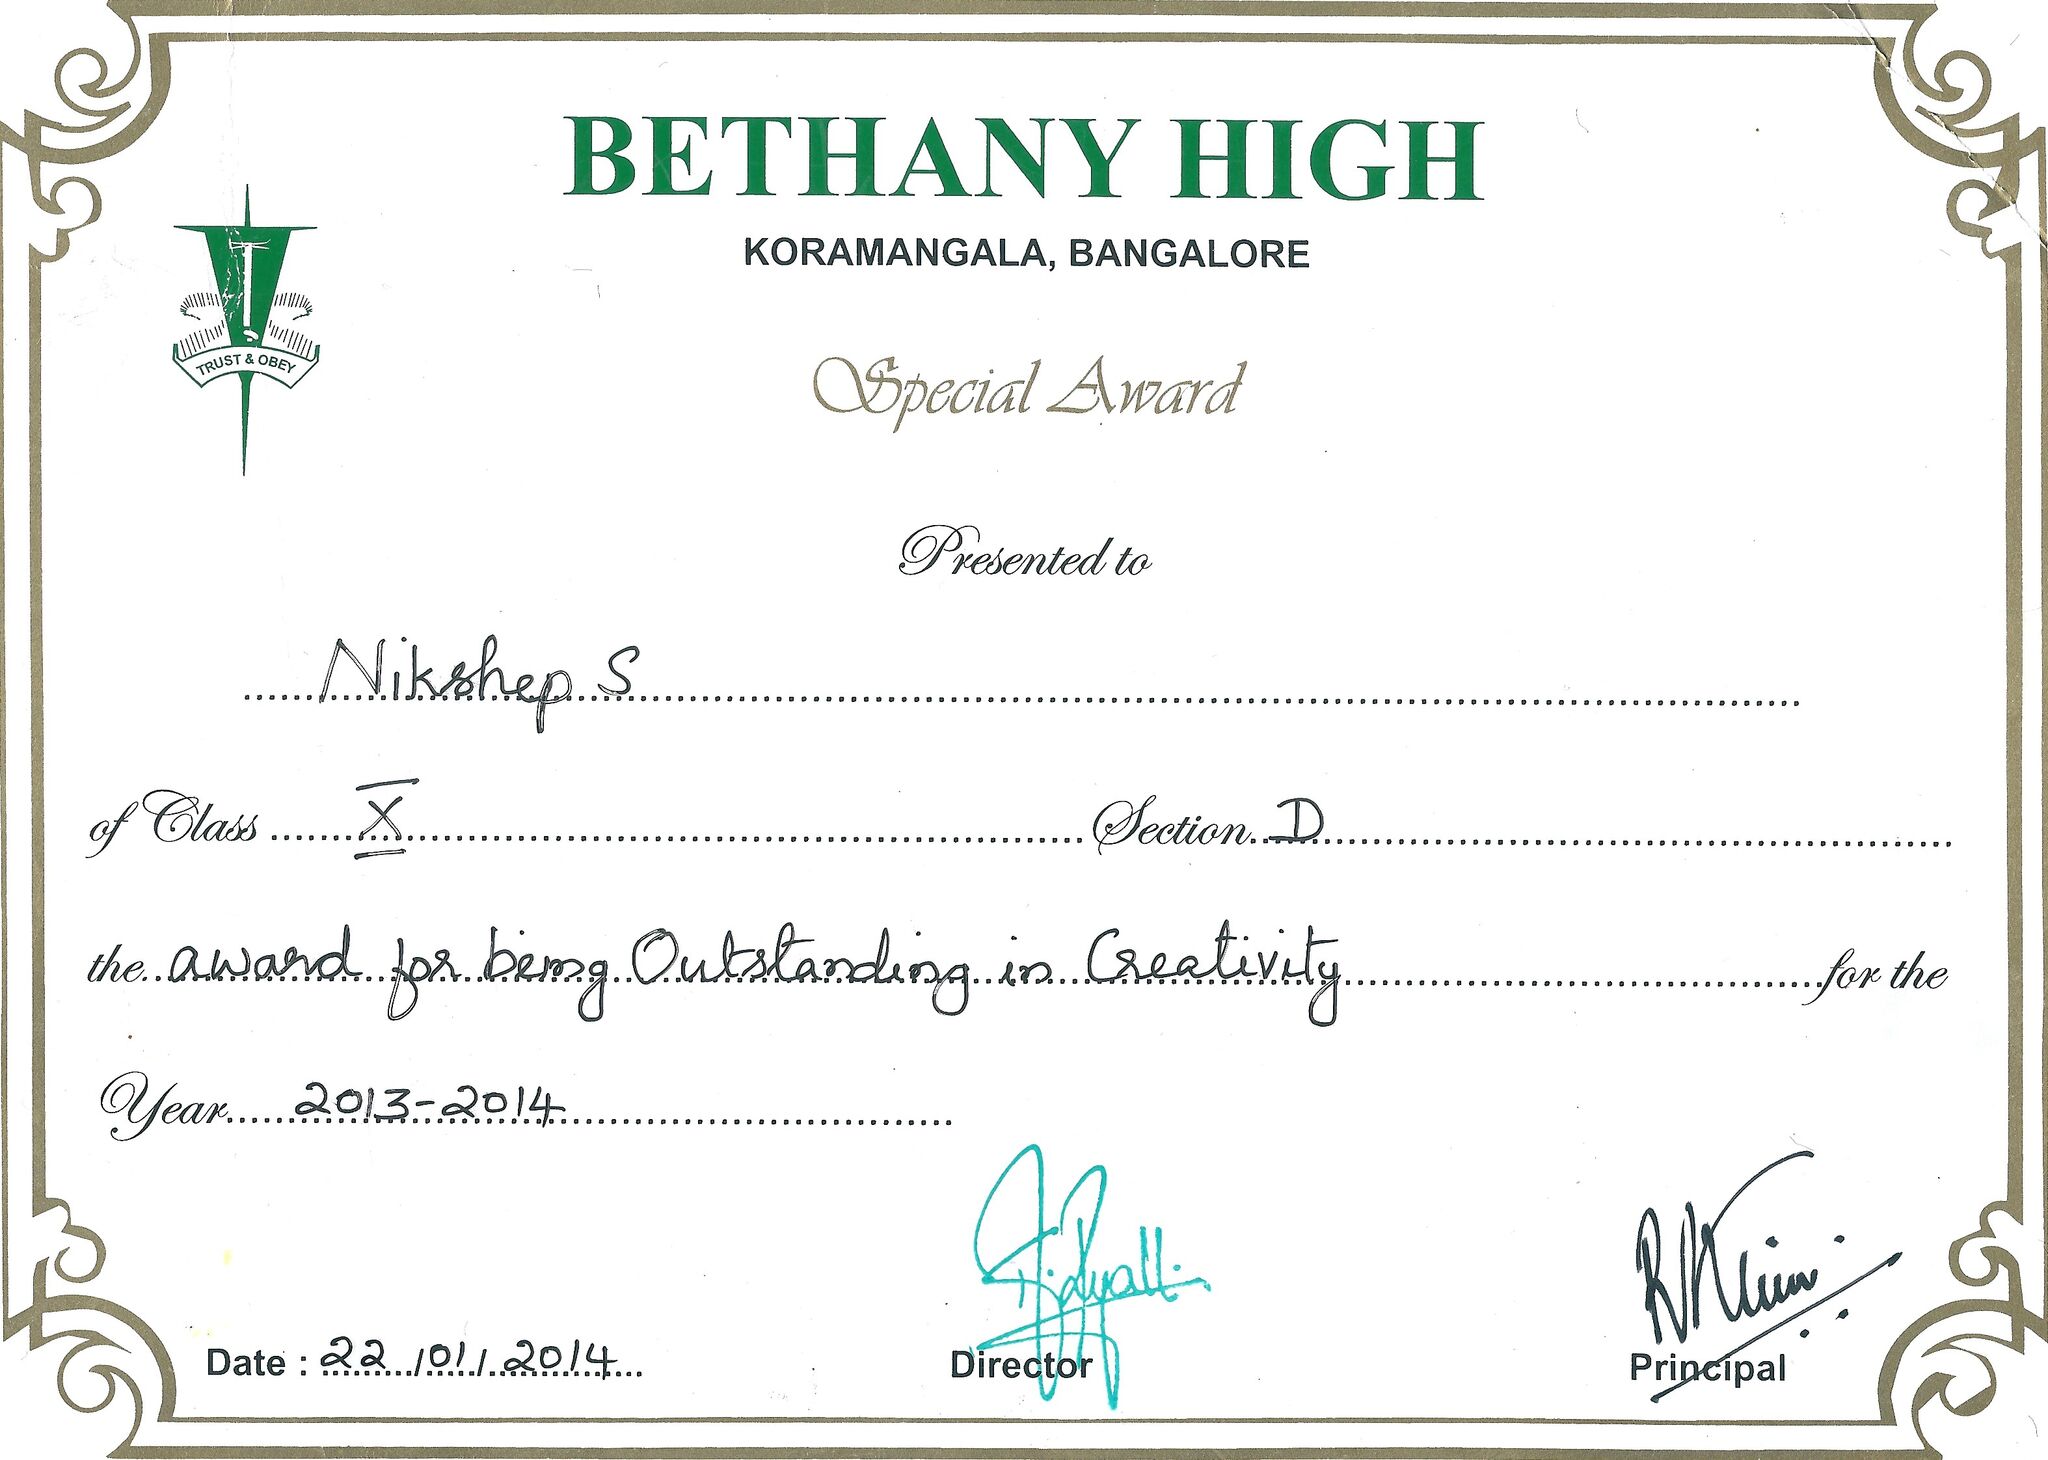 BETHANY HIGH
KORAMANGALA, BANGALORE
TRUST & OBEY
Special Award
Presented to
Nikshep S
of Class X Section D
the award for being Outstanding in Creativity for the
Year 2013-2014
Date : 22/01/2014 Director Principal